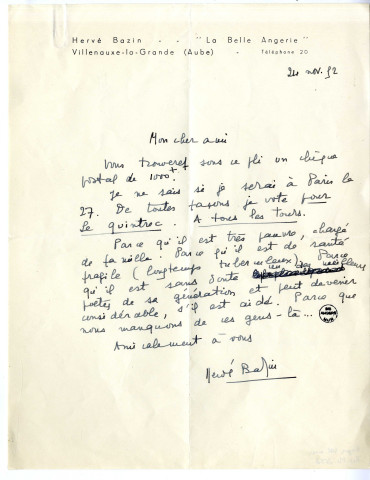 Hervé Bazin - - "La Belle Angerie"
Villenauxe-la-Grande (Aube) - Téléphone 20
24 nov. 52
Mon cher ami
Vous trouverez sous ce pli un chèque
postal de 1000 +.
Je ne sais si je serai à Paris le
27. De toutes façons je vote pour
Le Quintrec. A tous les tours.
Parce qu'il est très pauvre, chargé
de famille. Parce qu'il est de santé
fragile (longtemps tuberculeux). Parce
qu'il est sans doute un des meilleurs
poètes de sa génération et peut devenir
considérable, s'il est aidé. Parce que
nous manquons de ces gens-là...
Amicalement à vous
Hervé Bazin